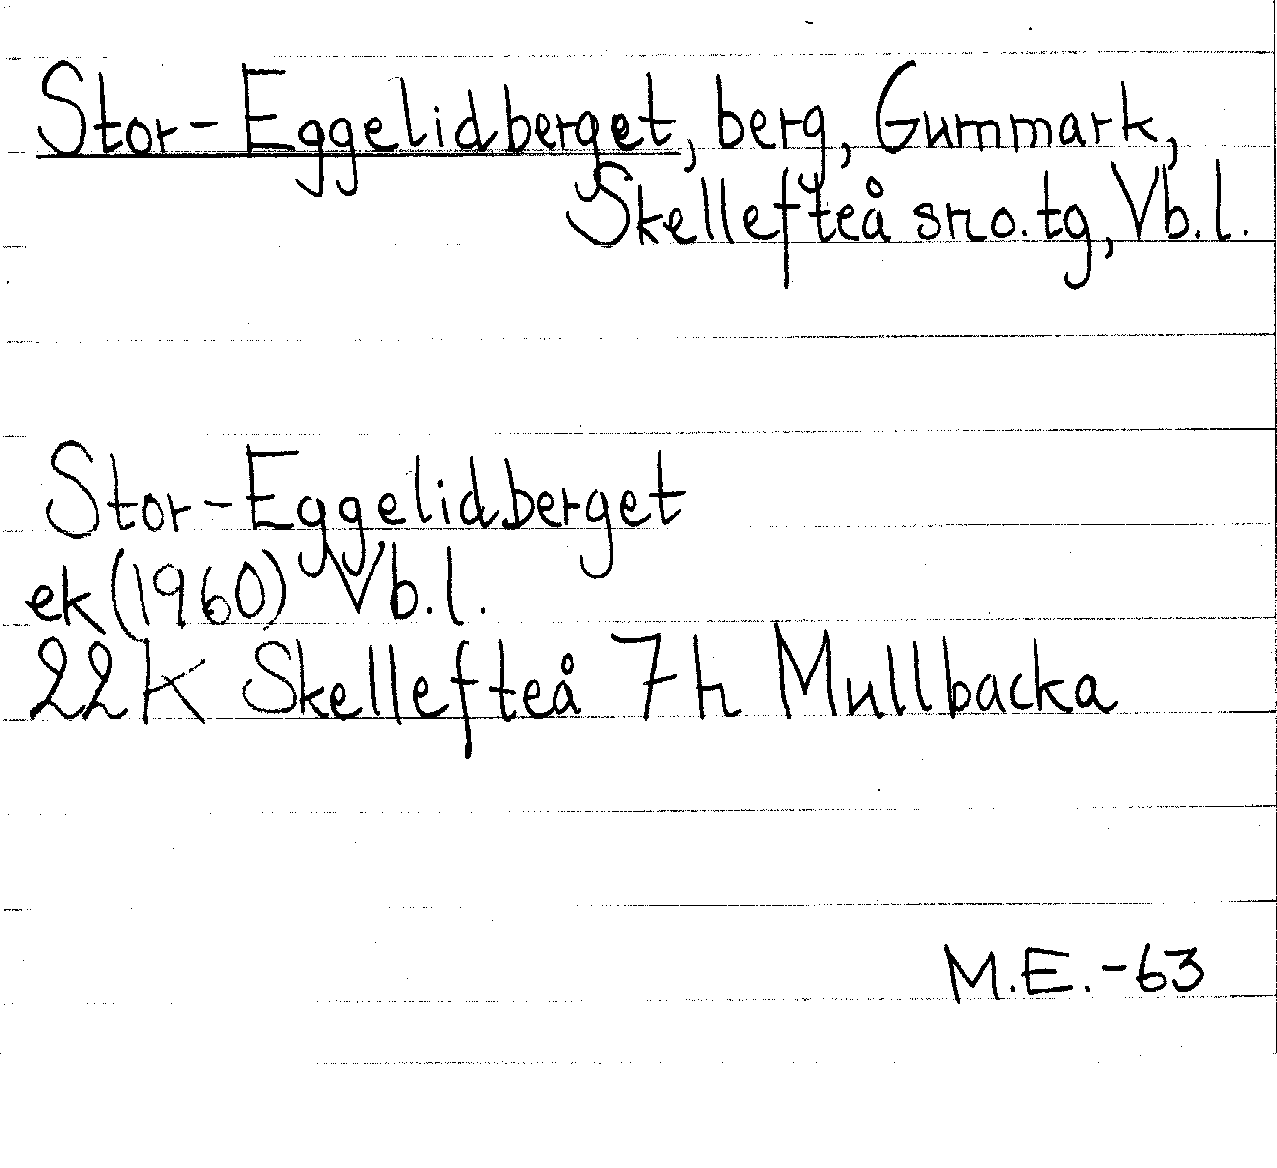 Stor-Eggelidberget, berg, Gummark,
Skellefteå sno.tg, Vb.l.
Stor-Eggelidberget
ek (1960) Vb.l.
22K Skellefteå 7h Mullbacka
M.E.-63